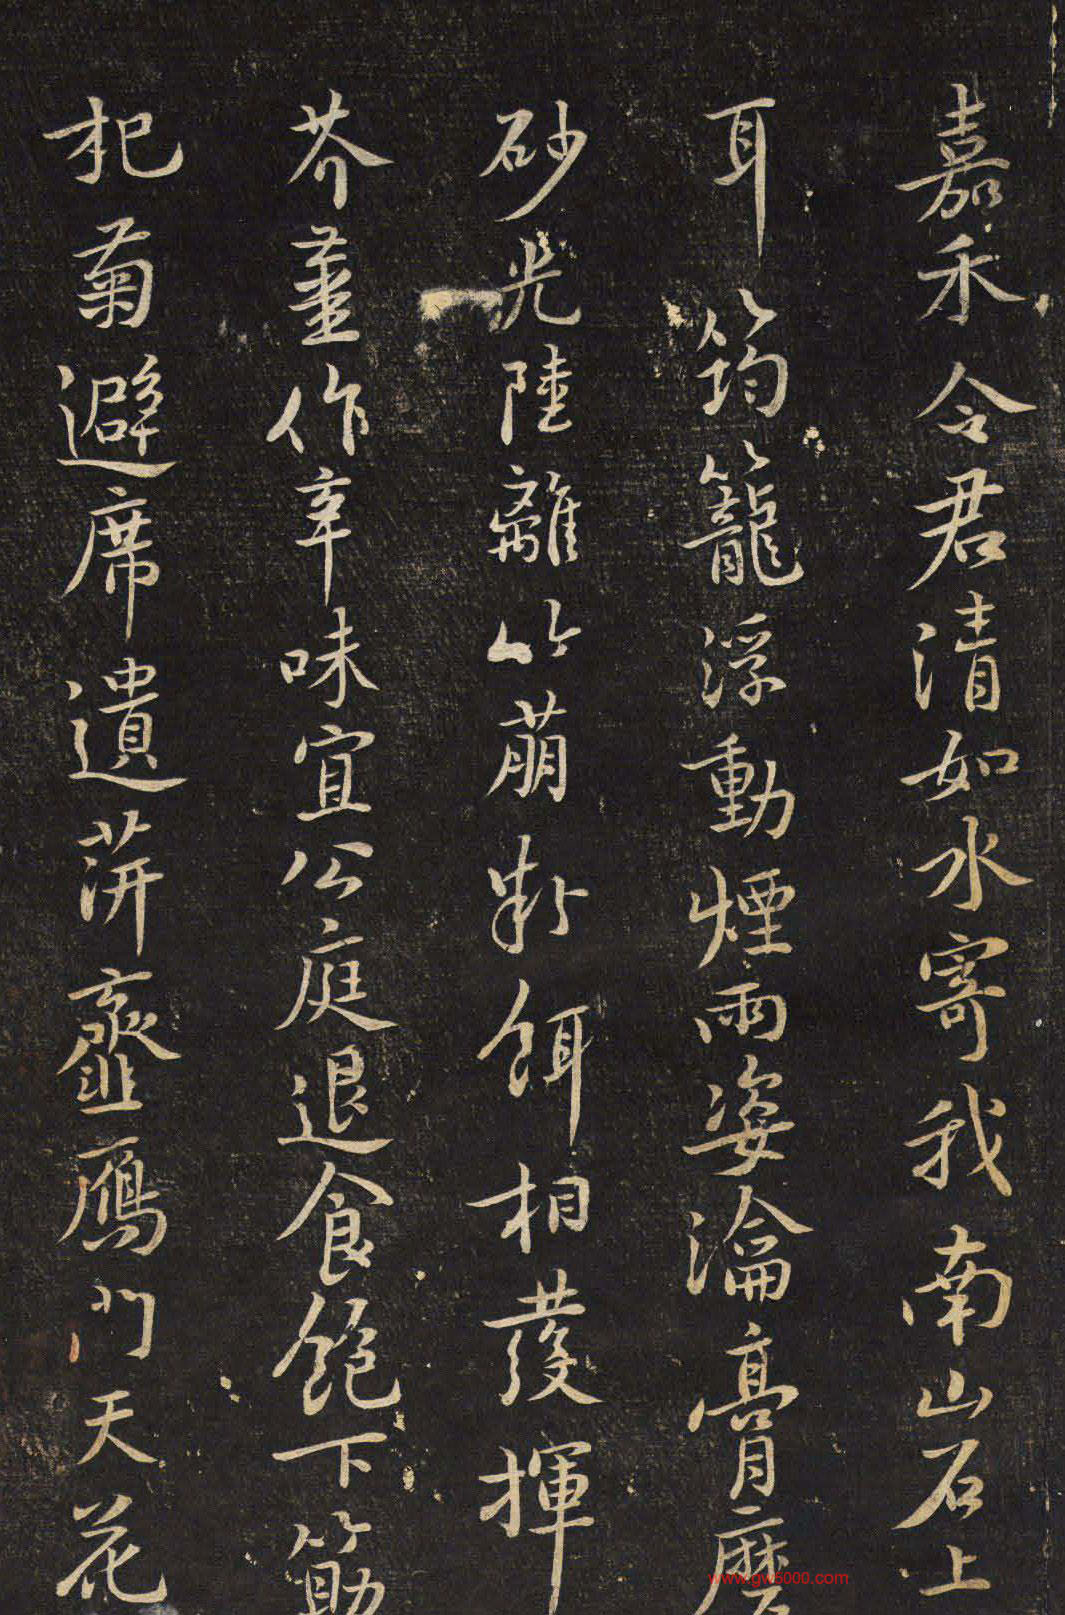 嘉禾令君清如水寄我南山石上
耳筠籠浮動煙雨姿瀹膏磨
砂光陸離竹萠粉餌相發揮
芥薑作辛味宜公庭退食飽下筯
杞菊避席遺蓱虀鴈門天花
www.gw5000.com